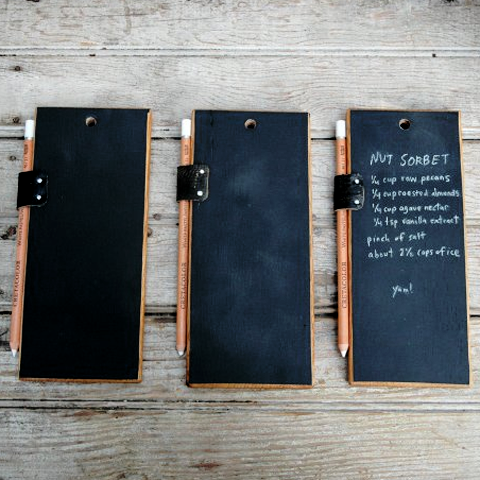 NUT SORBET
1/4 cup raw pecans
1/4 cup roasted almonds
1/4 cup agave nectar
1/4 tsp vanilla extract
pinch of salt
about 2 1/2 cups of ice
yum!
CRETACOLOR
CRETACOLOR
CRETACOLOR